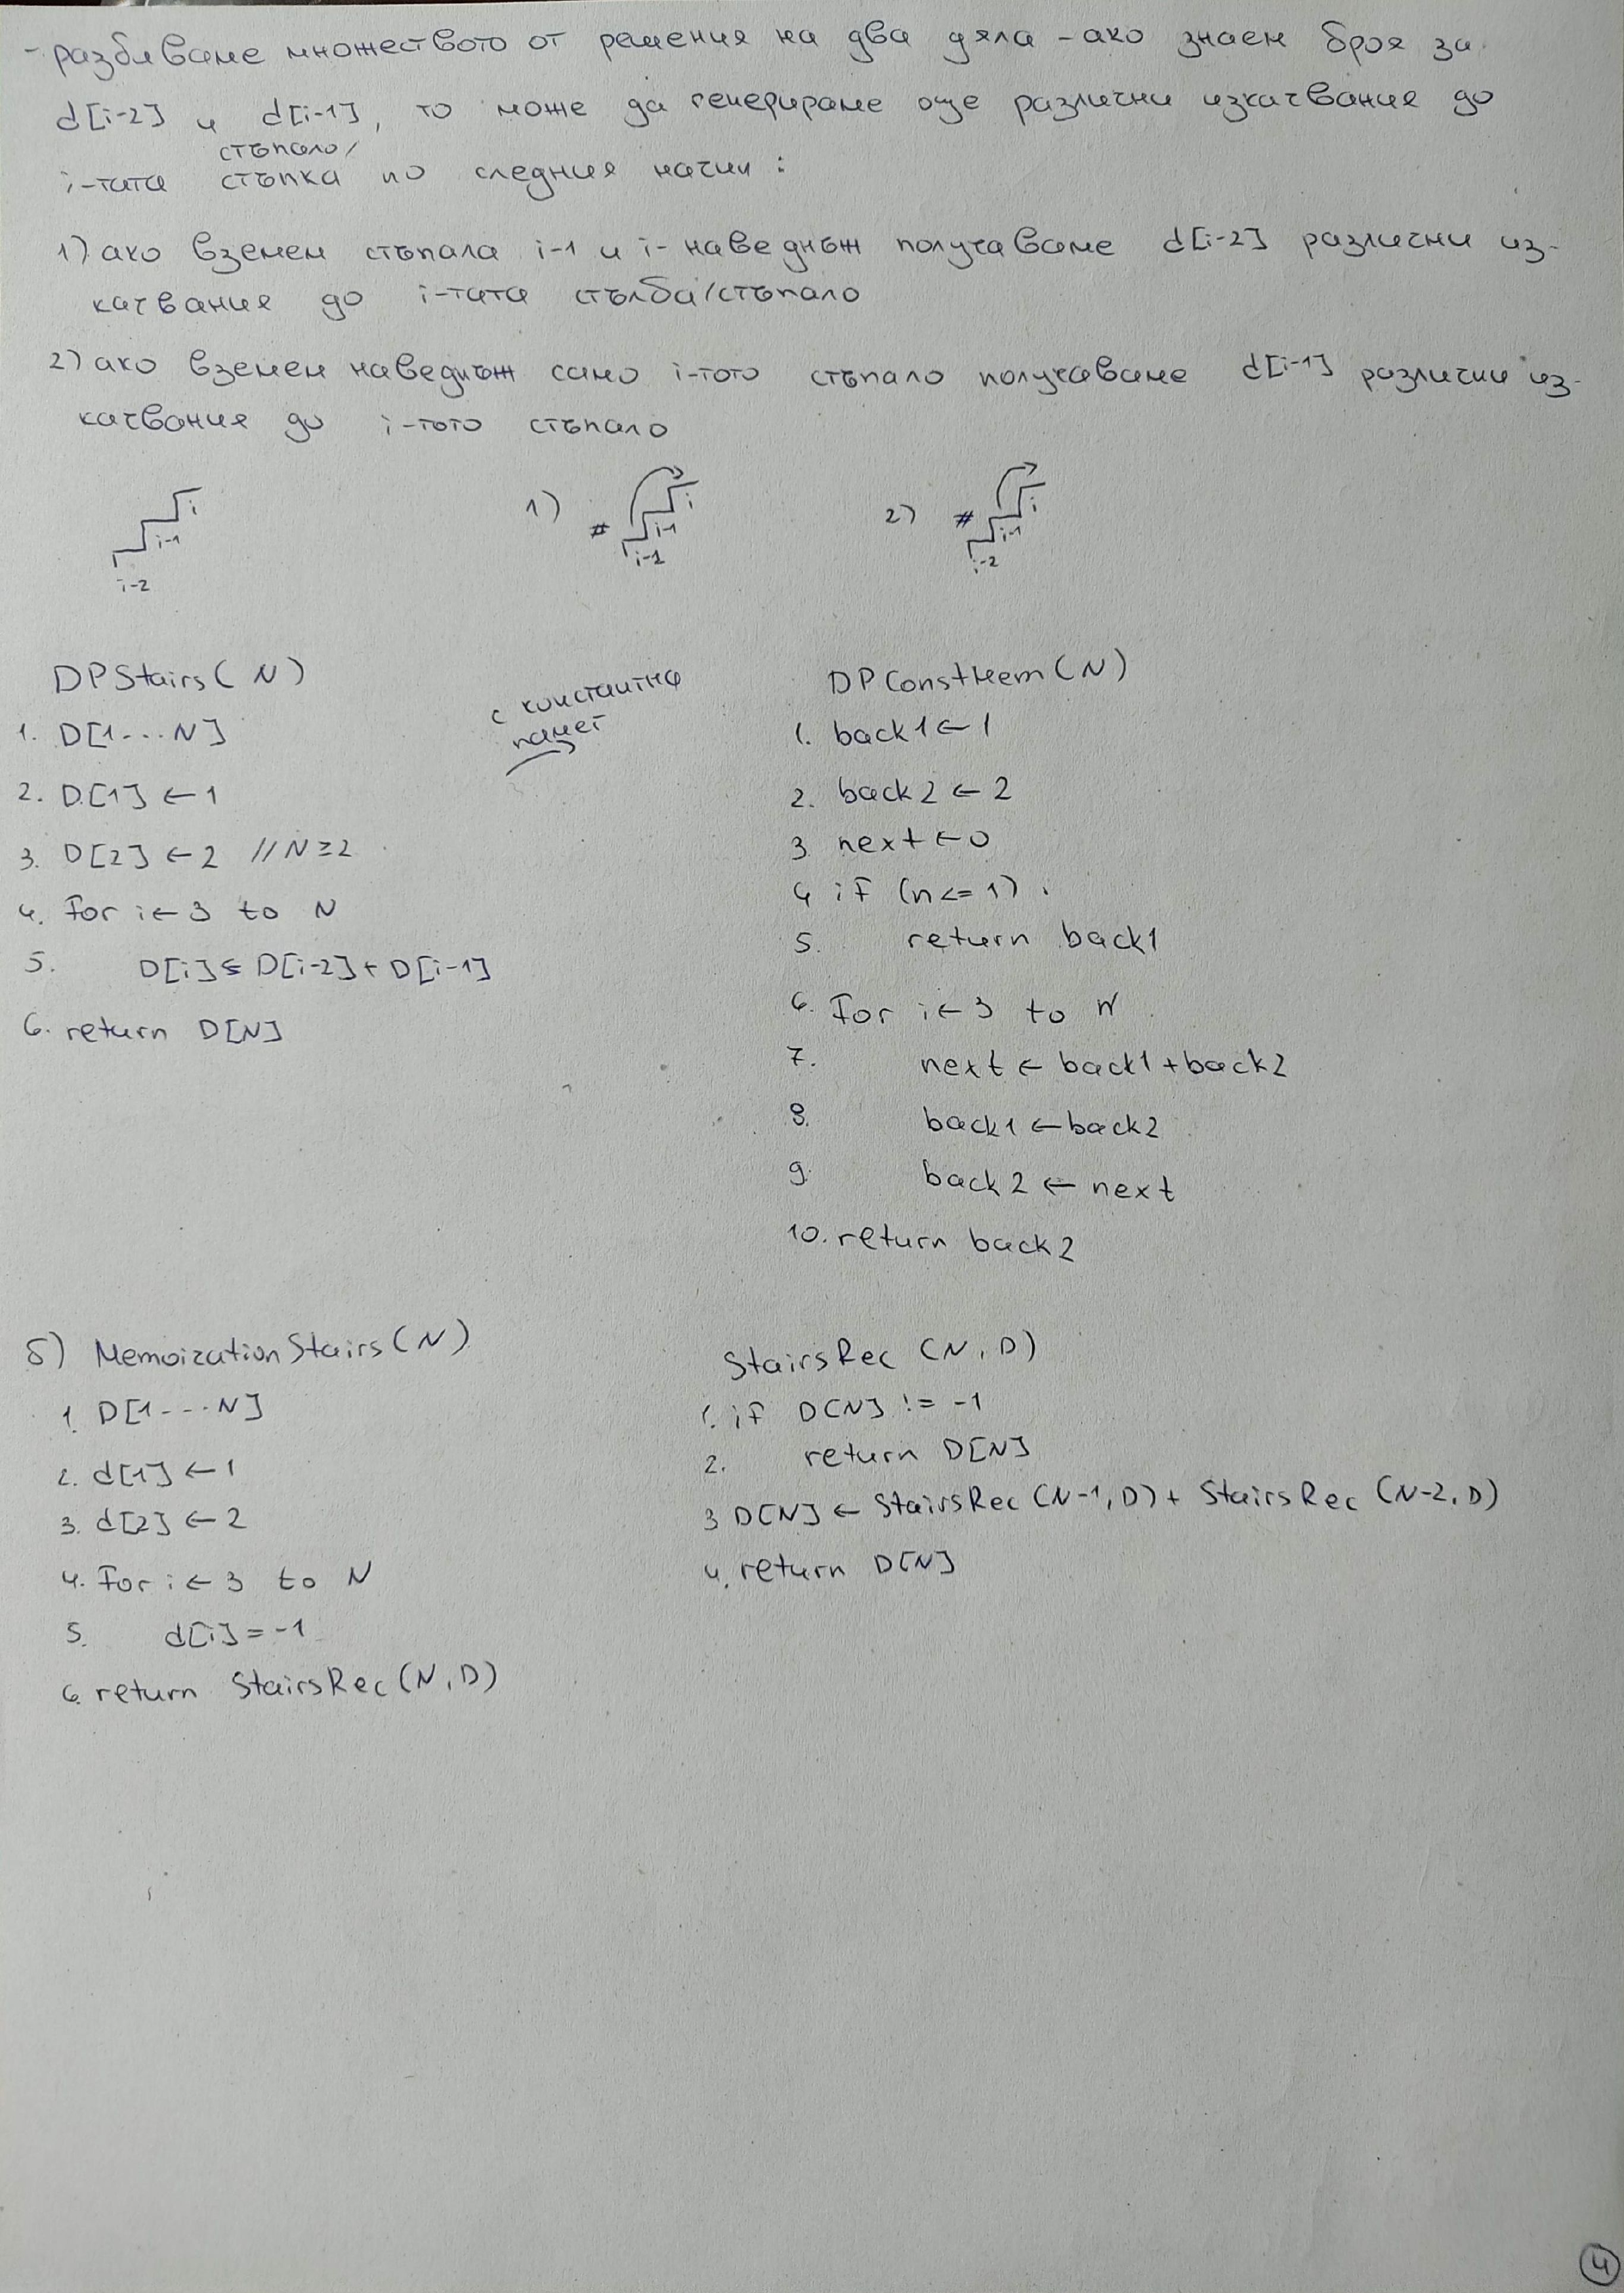 - разбиваме множеството от решения на два дяла - ако знаем броя за
d[i-2] и d[i-1], то може да генерираме още различни изкачвания до
стъпало/
i-тата стъпка по следния начин:
1) ако вземем стъпала i-1 и i- наведнъж получаваме d[i-2] различни из-
качвания до i-тата стълба/стъпало
2) ако вземем наведнъж само i-тото стъпало получаваме d[i-1] различни из-
качвания до i-тото стъпало
i
i-1
i-2
1) #
i
i-1
i-2
2) #
i
i-1
i-2
DPStairs(N)
1. D[1...N]
2. D[1] ← 1
3. D[2] ← 2 //N≥2
4. for i ← 3 to N
5. D[i] ← D[i-2] + D[i-1]
6. return D[N]
с константна
памет
→
DPConstMem(N)
1. back1 ← 1
2. back2 ← 2
3. next ← 0
4 if (n <= 1)
5. return back1
6. for i ← 3 to N
7. next ← back1 + back2
8. back1 ← back2
9. back2 ← next
10. return back2
б) MemoizationStairs(N)
1. D[1...N]
2. d[1] ← 1
3. d[2] ← 2
4. for i ← 3 to N
5. d[i] = -1
6. return StairsRec(N, D)
StairsRec (N, D)
1. if D[N] != -1
2. return D[N]
3 D[N] ← StairsRec (N-1, D) + StairsRec (N-2, D)
4. return D[N]
4